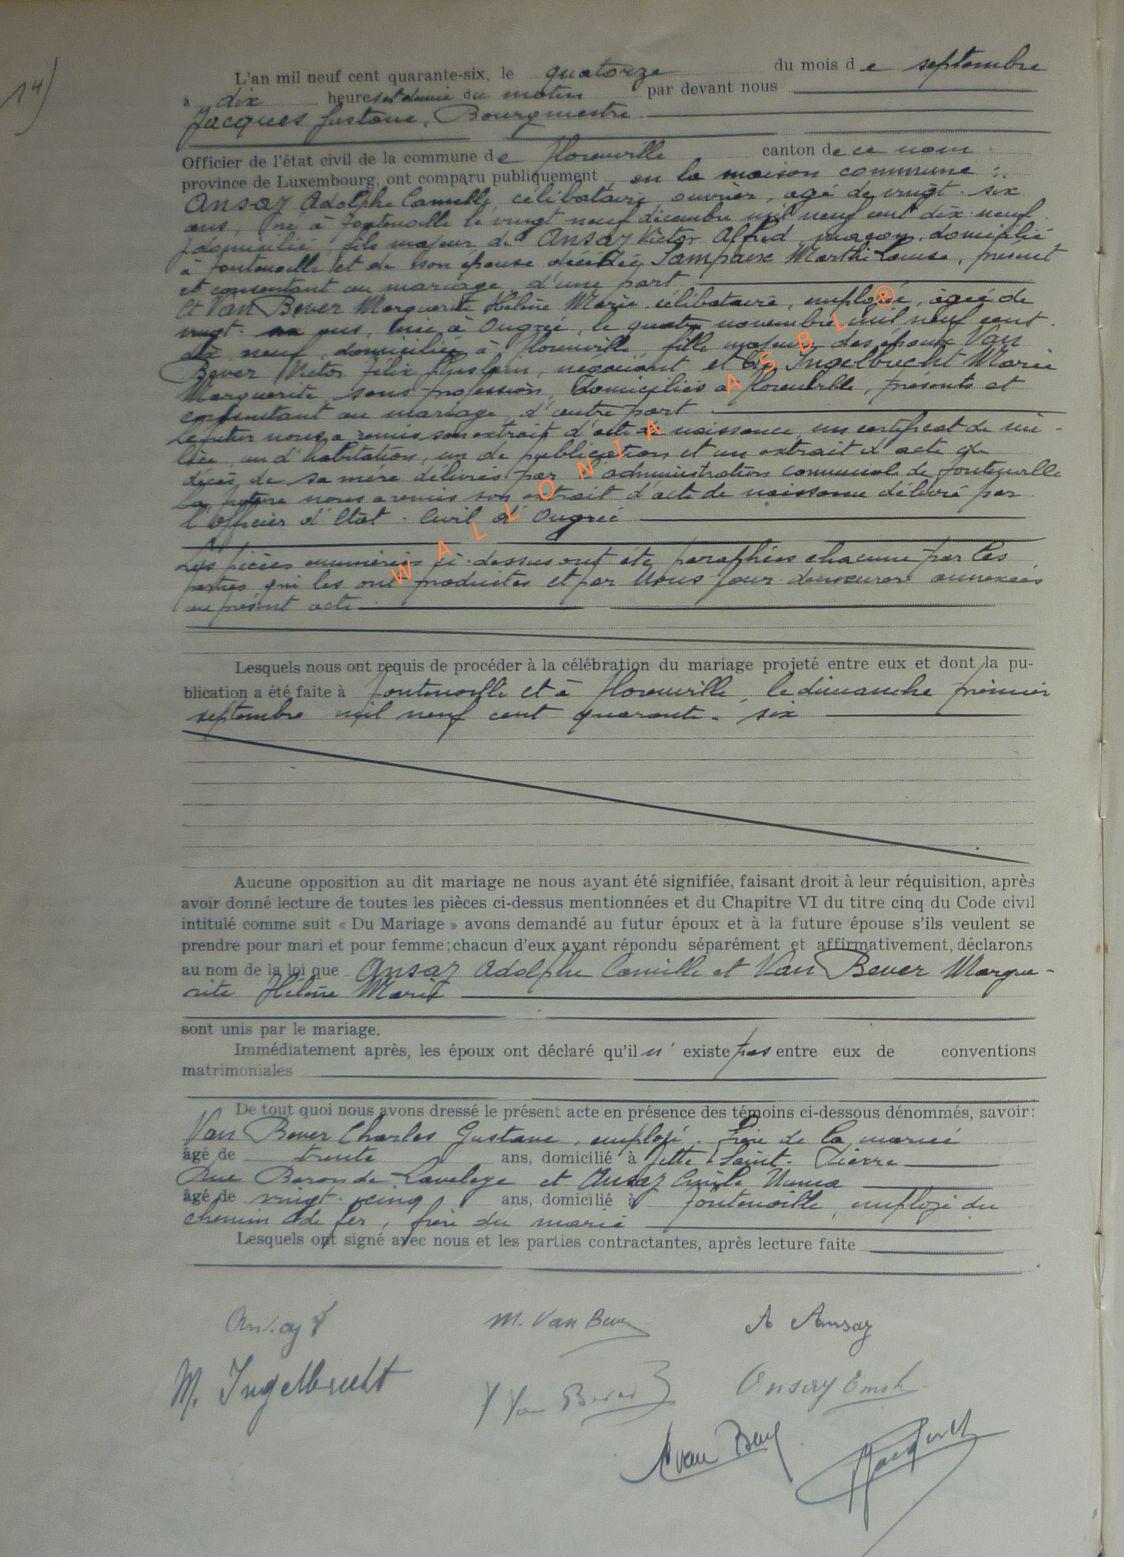 14)
L'an mil neuf cent quarante-six, le quatorze du mois de septembre
à dix heures et demie du matin par devant nous
Jacques Gustave, Bourgmestre
Officier de l'état civil de la commune de Florenville canton de ce nom
province de Luxembourg, ont comparu publiquement en la maison commune :
Ansay Adolphe Camille, célibataire ouvrier, âgé de vingt-six
ans, né à Fontenoille le vingt neuf décembre mil neuf cent dix-neuf
y domicilié, fils majeur de Ansay Victor Alfred, maçon, domicilié
à Fontenoille et de son épouse décédée Lampaux Marthe Louise, présent
et consentant au mariage, d'une part
Et Van Bever Marguerite Hélène Marie, célibataire, employée, âgée de
vingt-six ans, née à Ougrée, le quatre novembre mil neuf cent
dix neuf, domiciliée à Florenville fille majeure des époux Van
Bever Victor Félix, négociant et de Ingelbrecht Marie
Marguerite, sans profession, domiciliés à Florenville, présents et
consentant au mariage, d'autre part
Le futur nous a remis son extrait d'acte de naissance, un certificat de mi-
lice, un d'habitation, un de publication et un extrait d'acte de
décès de sa mère délivrés par l'administration communale de Fontenoille
La future nous a remis son extrait d'acte de naissance délivré par
l'officier d'Etat-Civil d'Ougrée
Les pièces énumérées ci-dessus ont été paraphées chacune par les
parties qui les ont produites et par Nous pour demeurer annexées
au présent acte
WALLONIA ASBL ®
Lesquels nous ont requis de procéder à la célébration du mariage projeté entre eux et dont la pu-
blication a été faite à Fontenoille et à Florenville, le dimanche premier
septembre mil neuf cent quarante-six
Aucune opposition au dit mariage ne nous ayant été signifiée, faisant droit à leur réquisition, après
avoir donné lecture de toutes les pièces ci-dessus mentionnées et du Chapitre VI du titre cinq du Code civil
intitulé comme suit « Du Mariage » avons demandé au futur époux et à la future épouse s'ils veulent se
prendre pour mari et pour femme; chacun d'eux ayant répondu séparément et affirmativement, déclarons
au nom de la loi que Ansay Adolphe Camille et Van Bever Margue-
rite Hélène Marie
sont unis par le mariage.
Immédiatement après, les époux ont déclaré qu'il n'existe pas entre eux de conventions
matrimoniales
De tout quoi nous avons dressé le présent acte en présence des témoins ci-dessous dénommés, savoir:
Van Bever Charles Gustave, employé, frère de la mariée
âgé de trente ans, domicilié à Jette-Saint-Pierre
Rue Baron de Laveleye et Ansay Emile
âgé de vingt-cinq ans, domicilié à Fontenoille, employé du
chemin de fer, frère du marié
Lesquels ont signé avec nous et les parties contractantes, après lecture faite
Ansay V M. Van Bever A Ansay
M. Ingelbrecht V Van Bever Ansay Emile
Van Bever GJacques